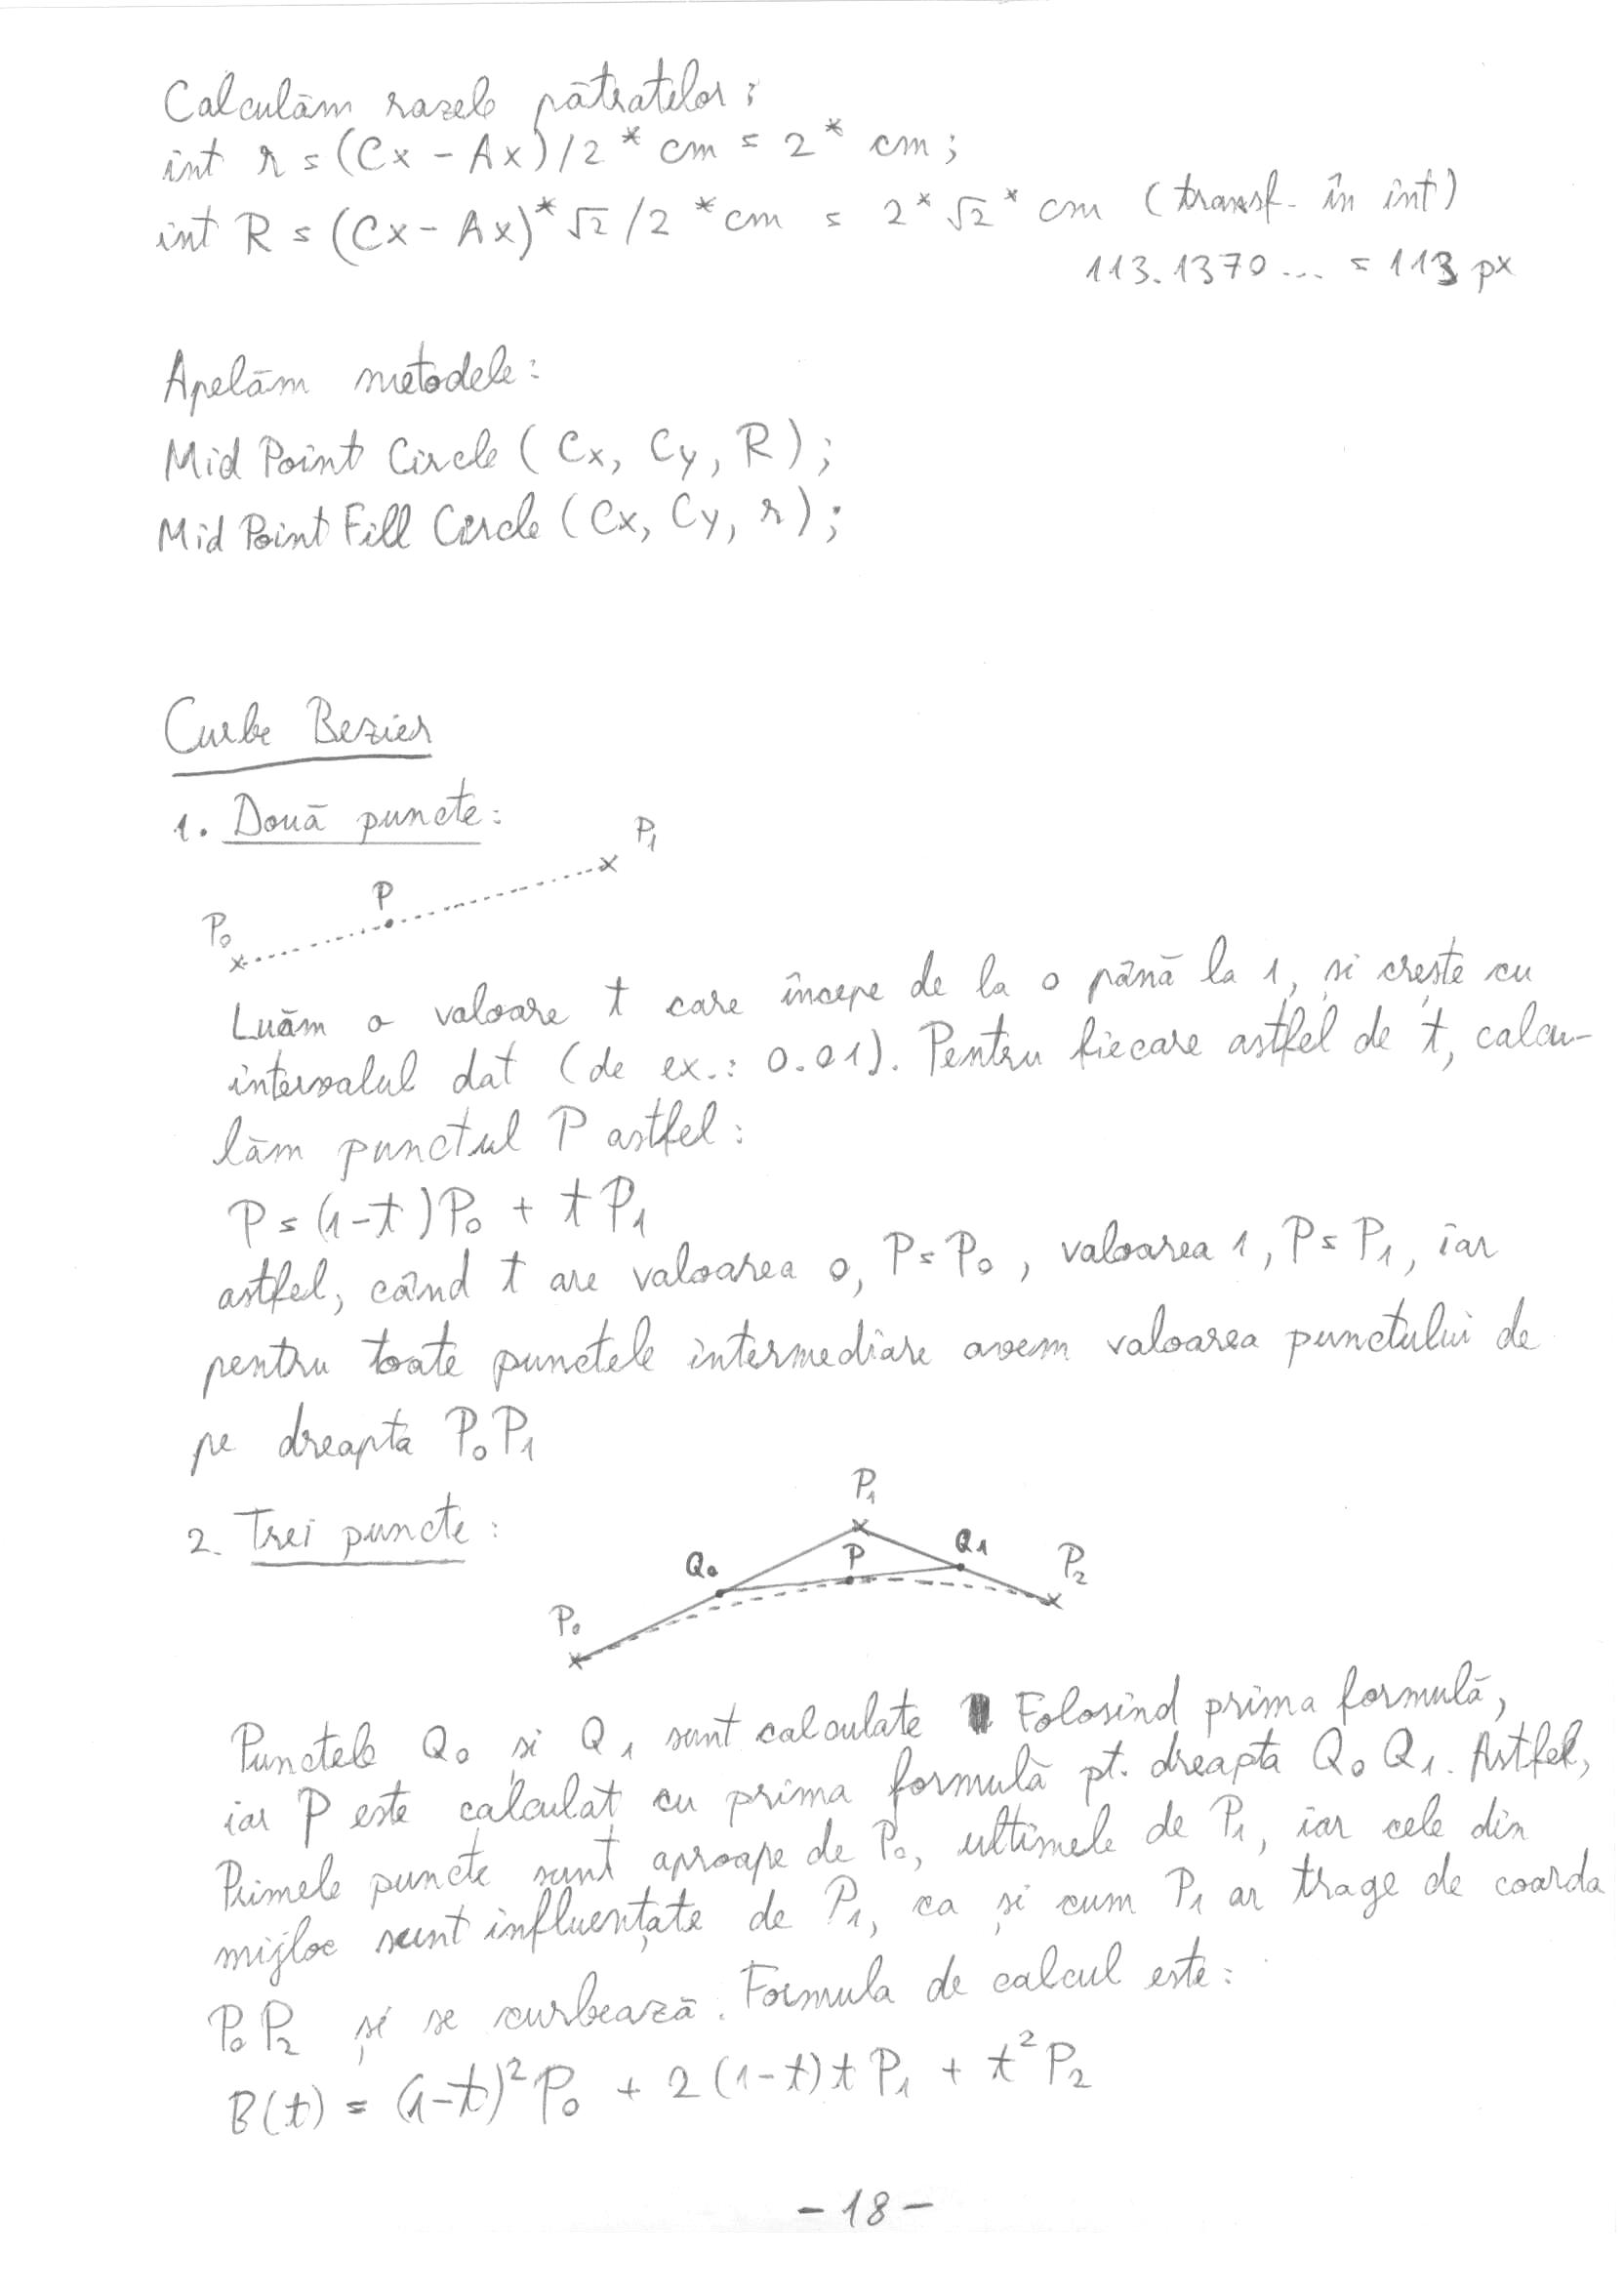 Calculăm razele pătratelor:
int r = (Cx - Ax)/2 * cm = 2 * cm;
int R = (Cx - Ax)*√2/2 * cm = 2*√2 * cm (transf. în int)
113.1370... = 113 px
Apelăm metodele:
Mid Point Circle (Cx, Cy, R);
Mid Point Fill Circle (Cx, Cy, r);
Curbe Bezier
1. Două puncte:
P₁
P
P₀
Luăm o valoare t care începe de la 0 până la 1, și crește cu
intervalul dat (de ex.: 0.01). Pentru fiecare astfel de t, calcu-
lăm punctul P astfel:
P = (1-t)P₀ + tP₁
astfel, când t are valoarea 0, P = P₀, valoarea 1, P = P₁, iar
pentru toate punctele intermediare avem valoarea punctului de
pe dreapta P₀P₁
P₁
2. Trei puncte:
Q₀ P Q₁ P₂
P₀
Punctele Q₀ și Q₁ sunt calculate Folosind prima formulă,
iar P este calculat cu prima formulă pt. dreapta Q₀Q₁. Astfel,
Primele puncte sunt aproape de P₀, ultimele de P₁, iar cele din
mijloc sunt influențate de P₁, ca și cum P₁ ar trage de coarda
P₀P₂ și se curbează. Formula de calcul este:
B(t) = (1-t)²P₀ + 2(1-t)tP₁ + t²P₂
-18-